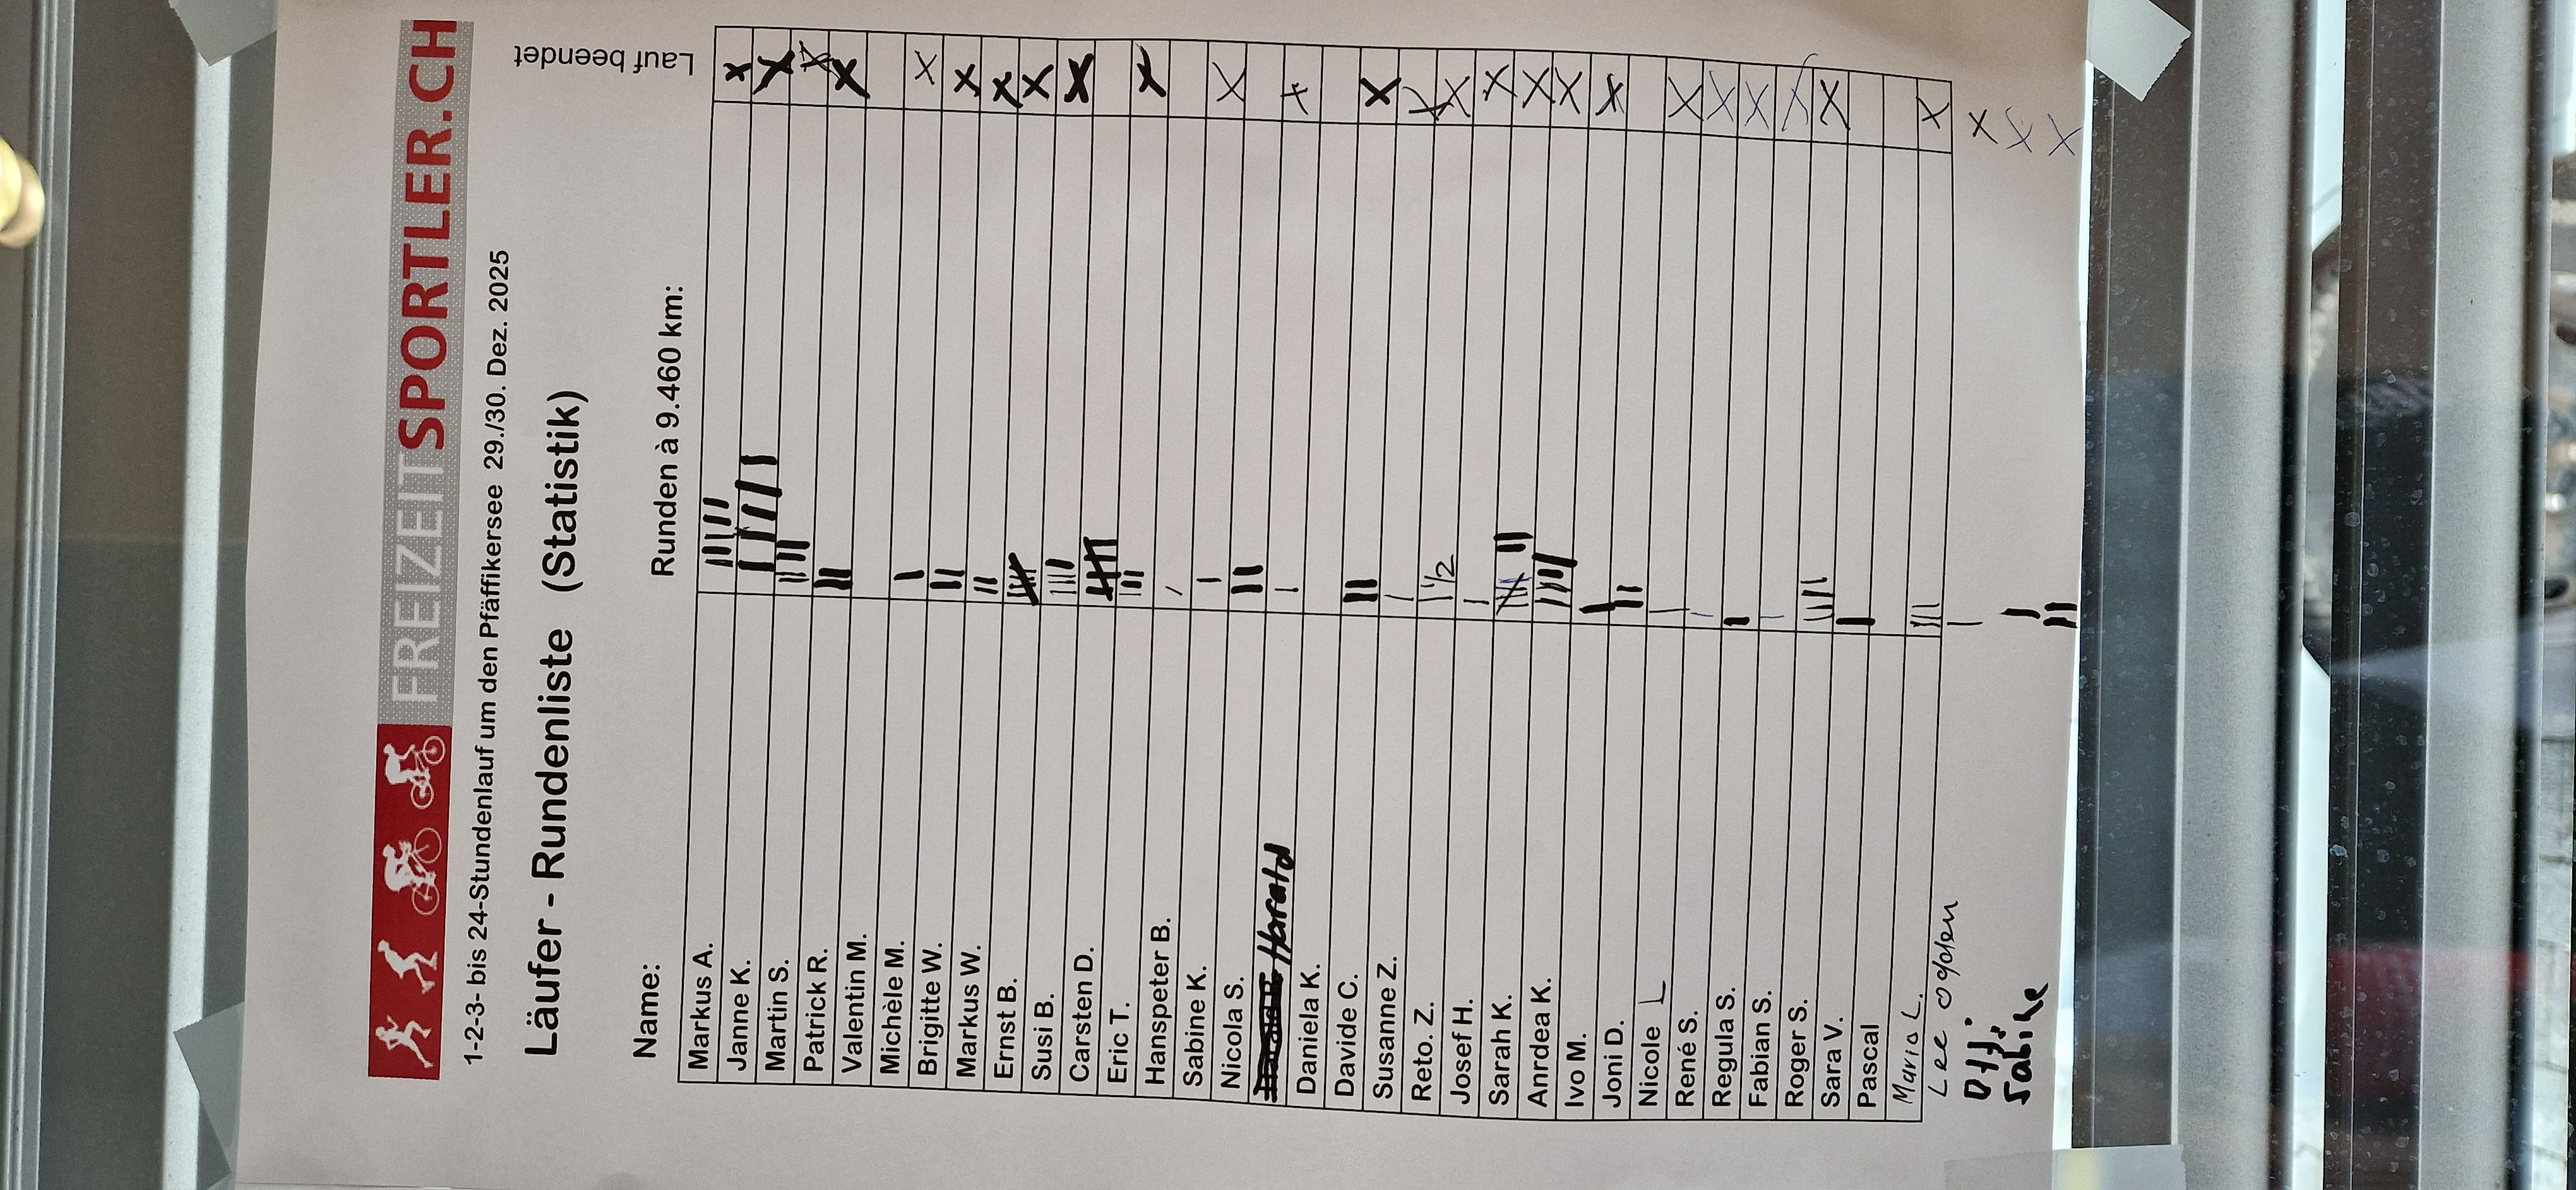 FREIZEITSPORTLER.CH
1-2-3- bis 24-Stundenlauf um den Pfäffikersee 29./30. Dez. 2025
Läufer - Rundenliste (Statistik)
Name: Runden à 9.460 km: Lauf beendet
Markus A. X
Janne K. X
Martin S. X
Patrick R. X
Valentin M.
Michèle M. X
Brigitte W. X
Markus W. X
Ernst B. X
Susi B. X
Carsten D.
Eric T. X
Hanspeter B.
Sabine K. X
Nicola S.
Harald X
Daniela K.
Davide C. X
Susanne Z. X
Reto. Z. 1 1/2 X
Josef H. X
Sarah K. X
Anrdea K. X
Ivo M. X
Joni D.
Nicole L X
René S. X
Regula S. X
Fabian S. X
Roger S. X
Sara V.
Pascal
Mario L. X
Lee Ogden X
X
Sabine X